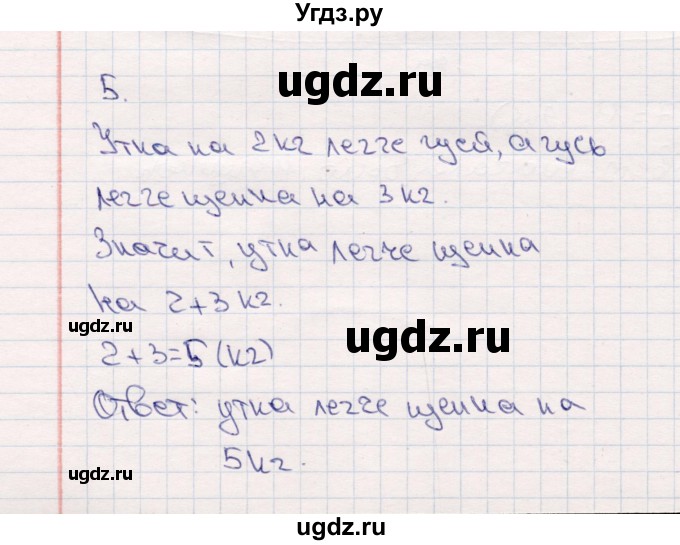 Угдз.ру
ugdz.ru
5.
Утка на 2 кг легче гуся, а гусь
легче щенка на 3 кг.
Значит, утка легче щенка
на 2+3 кг.
ugdz.ru
ugdz.ru
2+3=5 (кг)
Ответ: утка легче щенка на
5 кг.
ugdz.ru
ugdz.ru